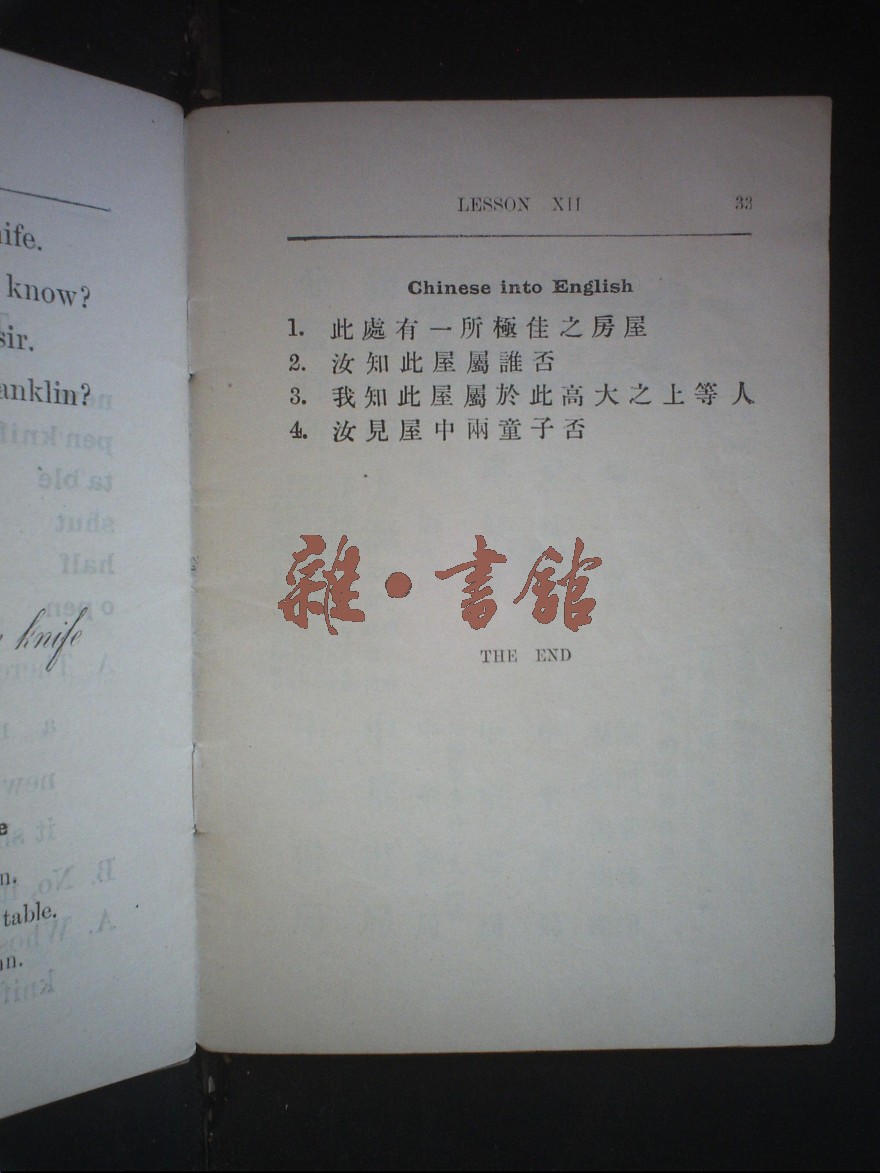 ife.
know?
sir.
anklin?
knife
e
n.
table.
an.
LESSON XII 33
Chinese into English
1. 此處有一所極佳之房屋
2. 汝知此屋屬誰否
3. 我知此屋屬於此高大之上等人
4. 汝見屋中兩童子否
雜·書館
THE END